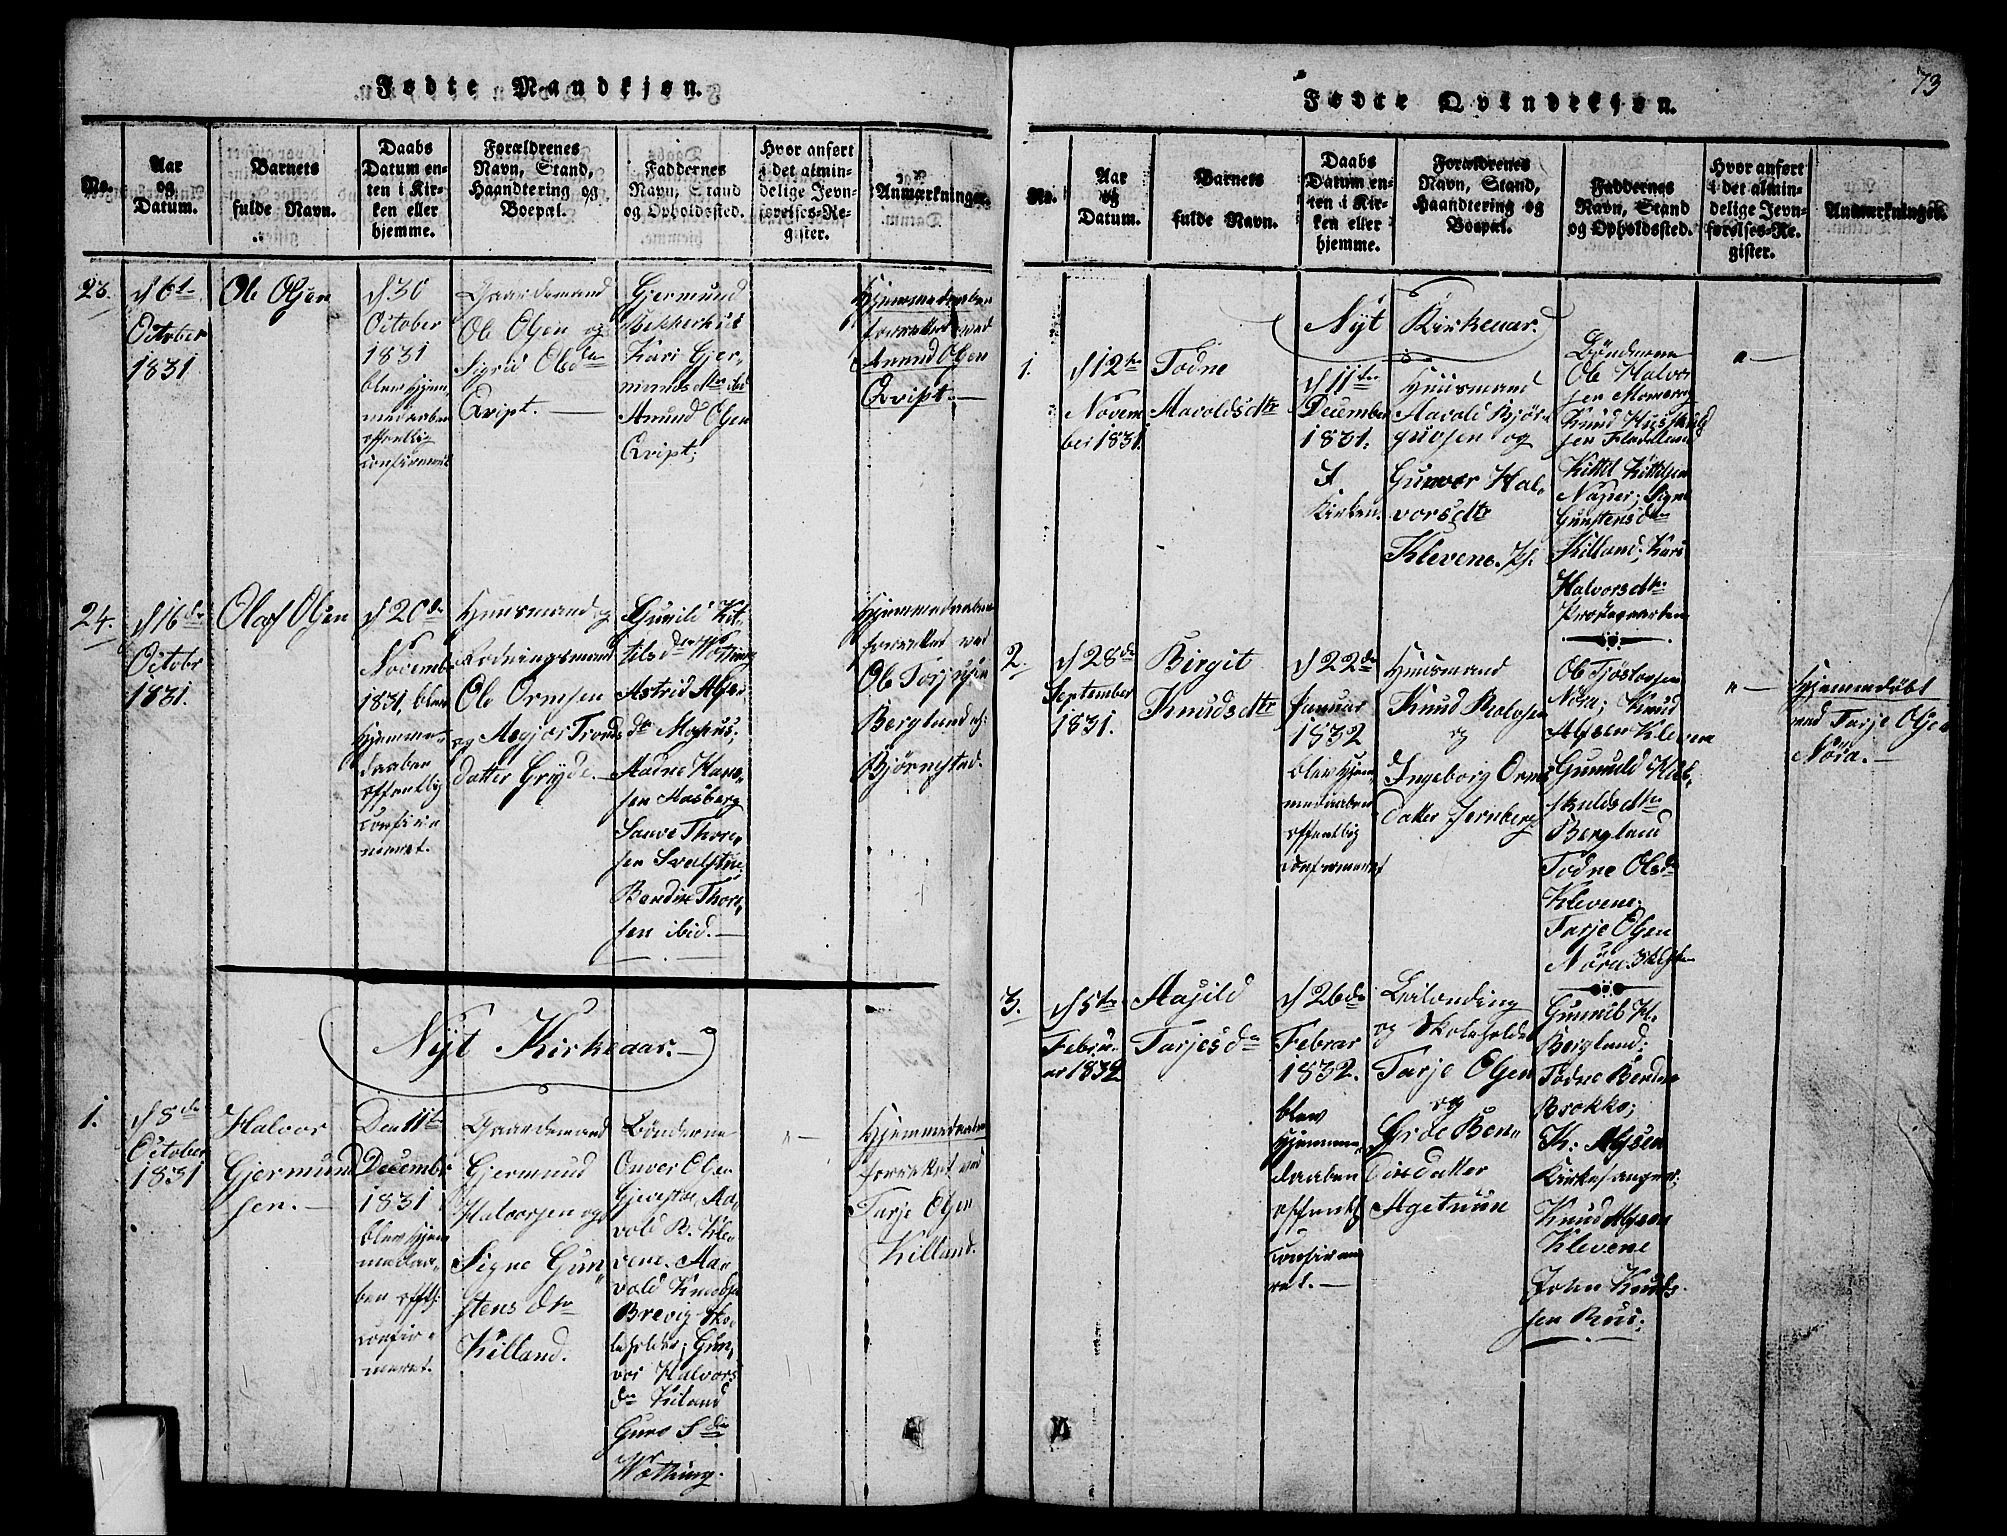 Fødte Mandkjøn.
No.
Aar
og
Datum.
Barnets
fulde Navn.
Daabs
Datum en-
ten i Kir-
ken eller
hjemme.
Forældrenes
Navn, Stand,
Haandtering og
Boepæl.
Faddernes
Navn, Stand
og Opholdssted.
Hvor anført
i det almin-
delige Jevn-
førelses-Re-
gister.
Anmærkninger.
23.
d 6te
October
1831
Ole Olsen
d 30
October
1831
blev hjem,
medaaben
offentlig
confirmeret
Gaardemand
Ole Olsen og
Sigrid Olsda
Qvipt.
Gjermund
Kari Gjer,
mundsdtr ibid
Anund Olsen
Qvipt;
Hjemmedaaben
forrettet ved
Anund Olsen
Qvipt.
24.
d 16de
Octobr
1831.
Olaf Olsen
d 20de
Novembr
1831, blev
hjemme,
daaben
offentlig
confir=
meret.
Huusmand og
Ole Ormsen
og Asgjer Tronds
datter Gryde.
Gunild Kit,
tilsdtr
Astrid Alfs,
dtr
Aadne Hans,
sen Aasberg
Sauve Thore,
sen
Bendixe Thore,
sen ibid.
Hjemmedaaben
forrettet ved
Ole Torjusen
Berglund og
Bjørnestad.
Nyt Kirkeaar.
1.
d 8de
October
1831
Halvor
Gjermund
sen.
Den 11te
Decembr
1831
blev hjem
medaa,
ben offtl:
confir=
meret.
Gaardemand
Gjermund
Halvorsen og
Signe Gun,
stens dtr
Killand.
Bønderne
Onver Olsen
Aa,
vold B. Kle,
vene. Aa,
vold Knudsen
Brevig Sko,
leholder; Gun,
vor Halvors
dtr Kiland
Guro Sda
Wætting.
"
Hjemmedaaben
forrettet ved
Tarje Olsen
Killand.
73
Fødte Qvindekjøn.
No.
Aar
og
Datum.
Barnets
fulde Navn.
Daabs
Datum en-
ten i Kir-
ken eller
hjemme.
Forældrenes
Navn, Stand,
Haandtering og
Boepæl.
Faddernes
Navn, Stand
og Opholdssted.
Hvor anført
i det almin-
delige Jevn-
førelses-Re-
gister.
Anmærkninger.
Nyt Kirkeaar.
1.
d 12te
Novem
ber 1831.
Todne
Aavoldsdtr
d 11te
December
1831.
I
Kirken.
Huusmand
Aavold Bjørn
gulsen og
Gunvor Hal,
vorsdtr
Klevene.
Bønderne
Ole Halvor
sen
Knud
sen
Kittil Kittilsen
Naper; Signe
Gunstensdtr
Killand; Kari
Halvorsdtr
"
2.
d 28de
September
1831.
Birgit
Knudsdtr
d 22de
Januar
1832
blev hjem
medaaben
offentlig
confirmeret
Huusmand
Knud Rolvsen
og
Ingeborg Orms
datter Jernberg
Ole Tjostovsen
Nora; Knud
Alfsen Klevene
Gunuld
skuldsdtr
Berglund
Todne Olsda
Klevene;
Tarje Olsen
Nøra.
"
Hjemmedøbt
ved Tarje Olsen
Nöra.
3.
d 5te
Febru,
ar 1832
Aasild
Tarjesda
d 26de
Februar
1832.
blev
hjemme,
daaben
offentlig
confirme
ret.
og Skoleholder
Tarje Olsen
og
Groe Ben,
datter
Agetuun
Gunild K.
Berglund;
Todne Bendix
Brokke;
K: Alfsen
Kirkesanger;
Knud Alfsen
Klevene
John Knuds
sen Ruu;